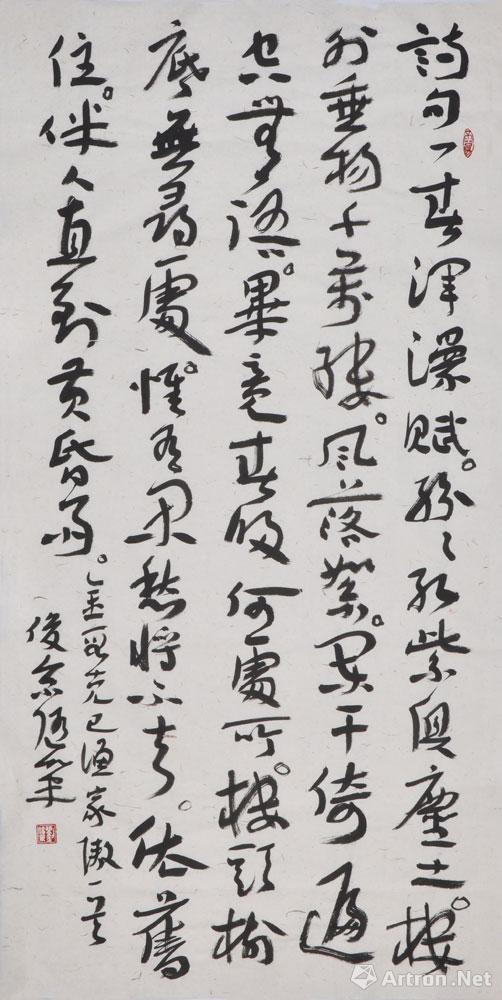 詩句一春渾漫賦。紛々紅紫俱塵土。樓
外垂楊千萬縷。風落絮。闌干倚遍
空無語。畢竟春歸何處所。樹頭樹
底無尋處。惟有閑愁將不去。依舊
住。伴人直到黃昏雨。
金段克己漁家傲一首
俊京
Artron.Net